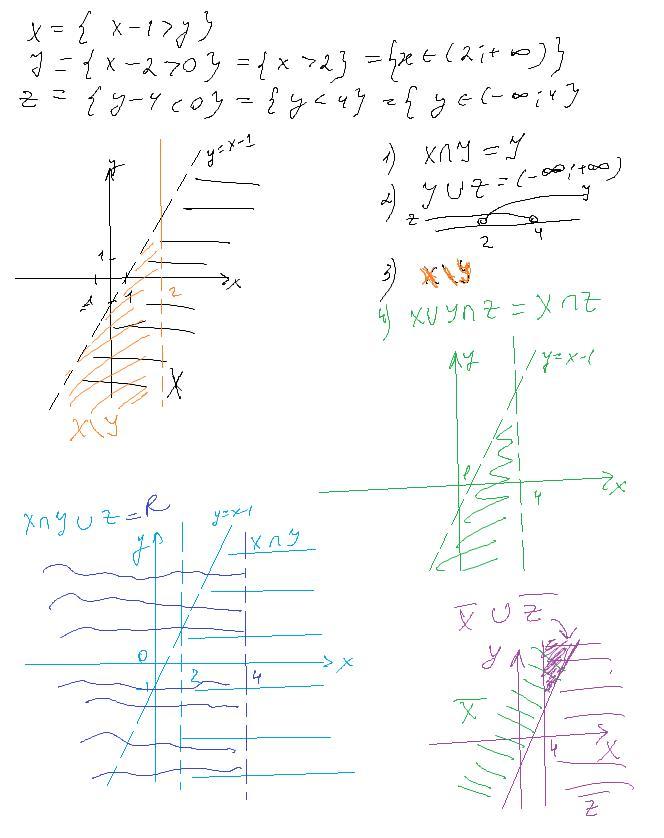 X = { x-1>y}
Y = { x-2>0} = {x>2} = {x∈(2;+∞)}
Z = { y-4<0} = { y<4} = { y∈(-∞;4}
y
y=x-1
1
1
2
x
X
X\Y
1) X∩Y = Y
2) Y∪Z = (-∞;+∞)
Z
Y
2
4
3) X\Y
4) X∪Y∩Z = X∩Z
y
y=x-1
1
4
x
X∩Y∪Z = R
y=x-1
y
X∩Y
0
4
x
X̅ ∪ Z̅
y
X̅
4
X
Z̅